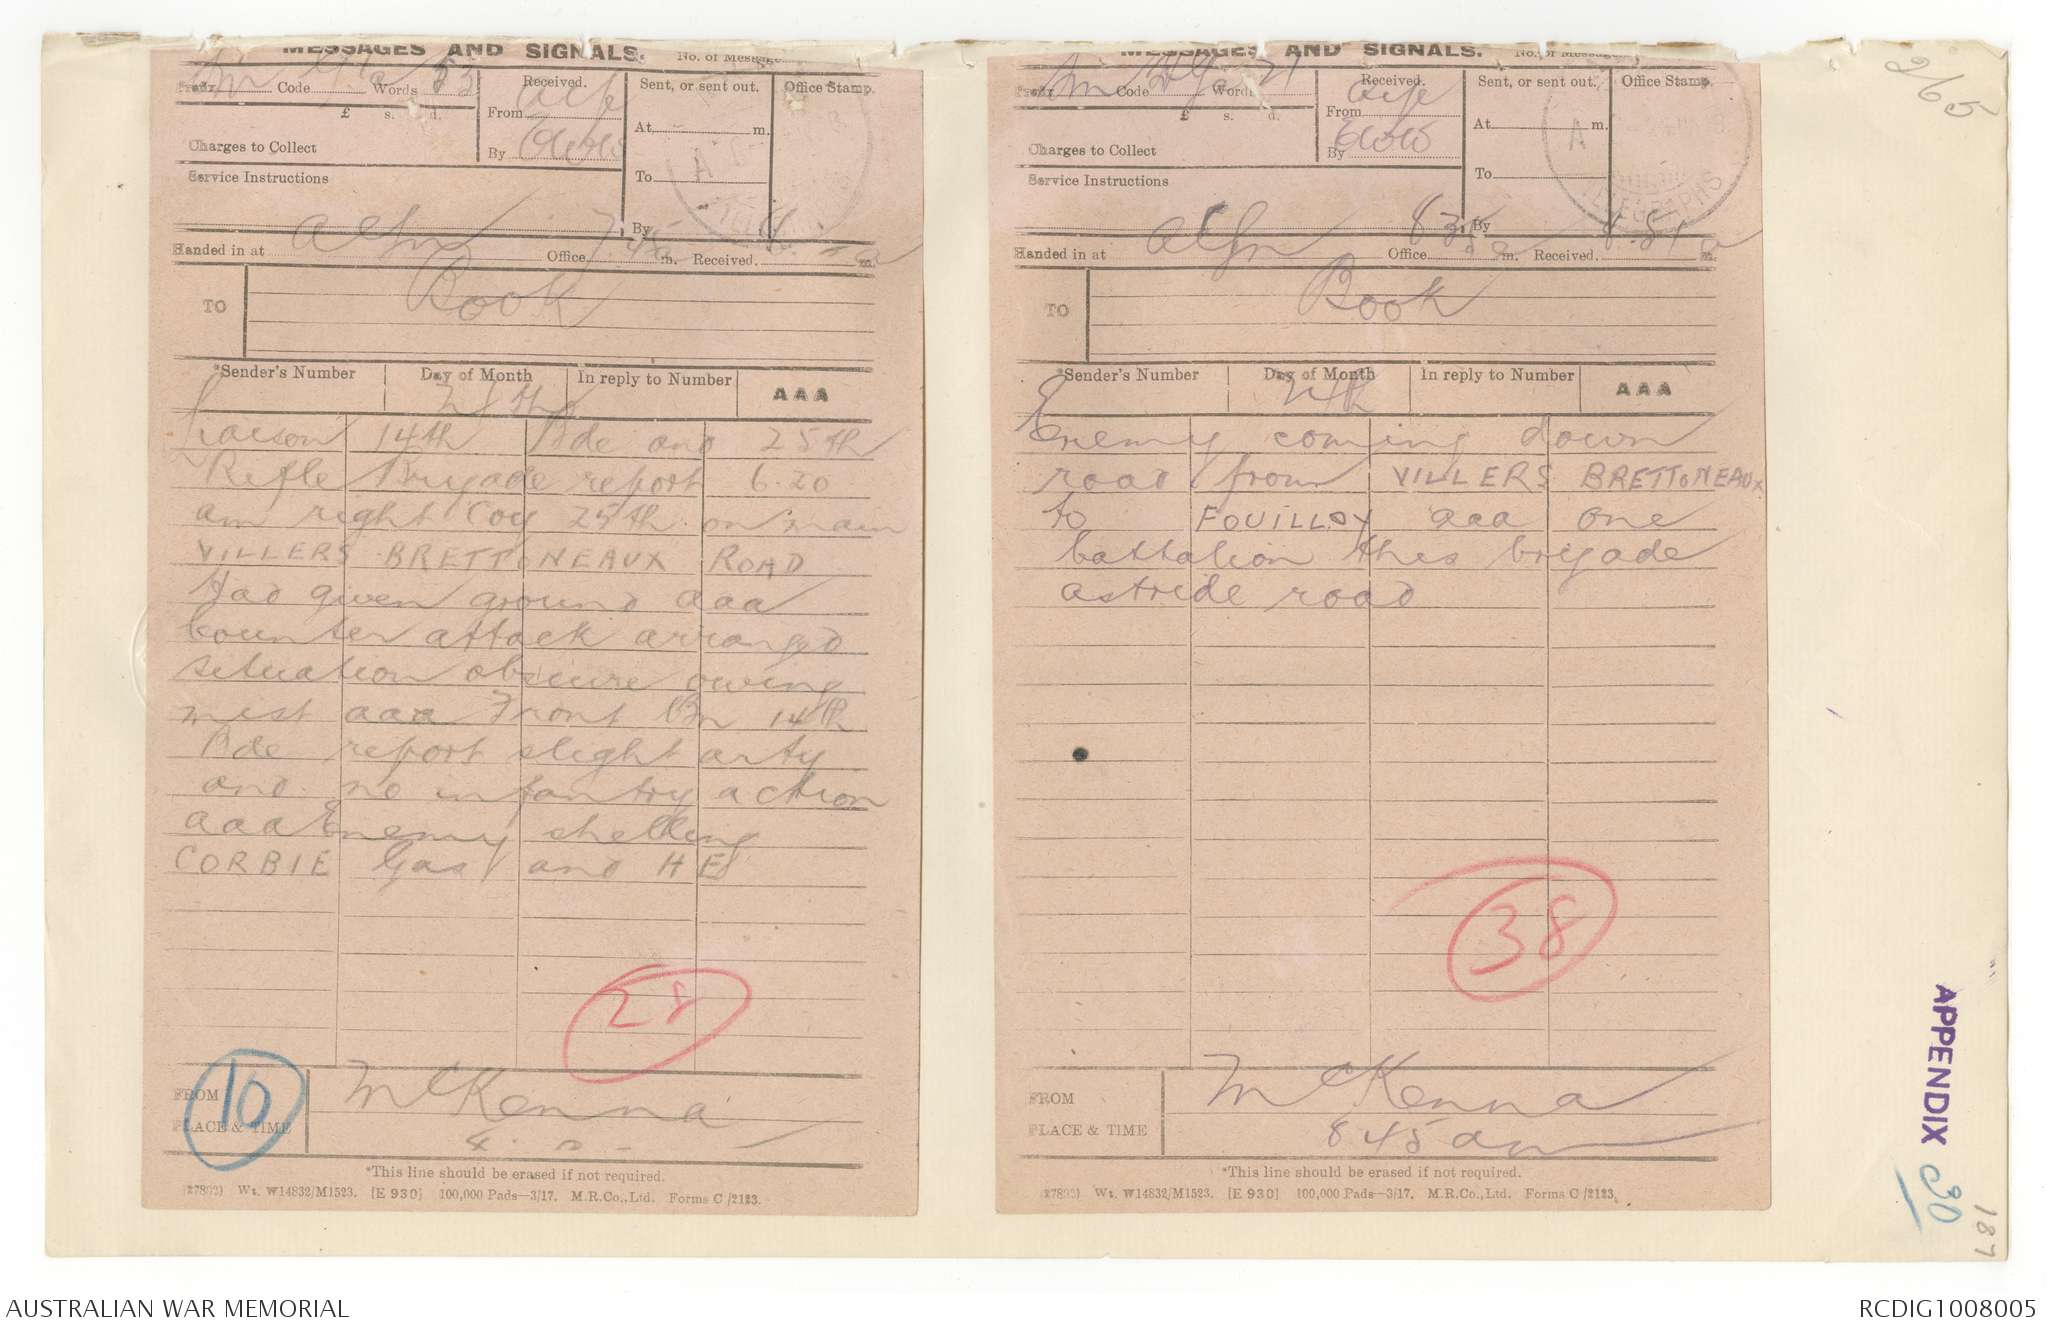 MESSAGES AND SIGNALS. No. of Message
Prefix Sm Code Words 83
£ s. d.
Charges to Collect
Service Instructions
Received.
From
By
Sent, or sent out.
At m.
To
By
Office Stamp.
Handed in at Office 7.45a m. Received. m.
TO Book
*Sender's Number Day of Month In reply to Number AAA
24th
Liaison 14th Bde and 25th
Rifle Brigade report 6.20
am right Coy 25th on main
VILLERS BRETTONEAUX ROAD
Had given ground aaa
Counter attack arranged
situation obscure owing
mist aaa Front Bn 14th
Bde report slight arty
and no infantry action
aaa Enemy shelling
CORBIE Gas and HE
28
10
FROM McKenna
PLACE & TIME
*This line should be erased if not required.
(27892) Wt. W14832/M1523. [E 930] 100,000 Pads—3/17. M.R.Co., Ltd. Forms C/2123.
MESSAGES AND SIGNALS. No. of Message
Prefix Sm Code Words 27
£ s. d.
Charges to Collect
Service Instructions
Received.
From
By
Sent, or sent out.
At m.
To
By
Office Stamp.
TELEGRAPHS
Handed in at Office 835a m. Received. 8.51a m.
TO Book
*Sender's Number Day of Month In reply to Number AAA
24th
Enemy coming down
road from VILLERS BRETTONEAUX
to FOUILLOY aaa one
battalion this brigade
astride road
38
FROM McKenna
PLACE & TIME 845am
*This line should be erased if not required.
(27892) Wt. W14832/M1523. [E 930] 100,000 Pads—3/17. M.R.Co., Ltd. Forms C/2123.
265
APPENDIX 30
187
AUSTRALIAN WAR MEMORIAL
RCDIG1008005